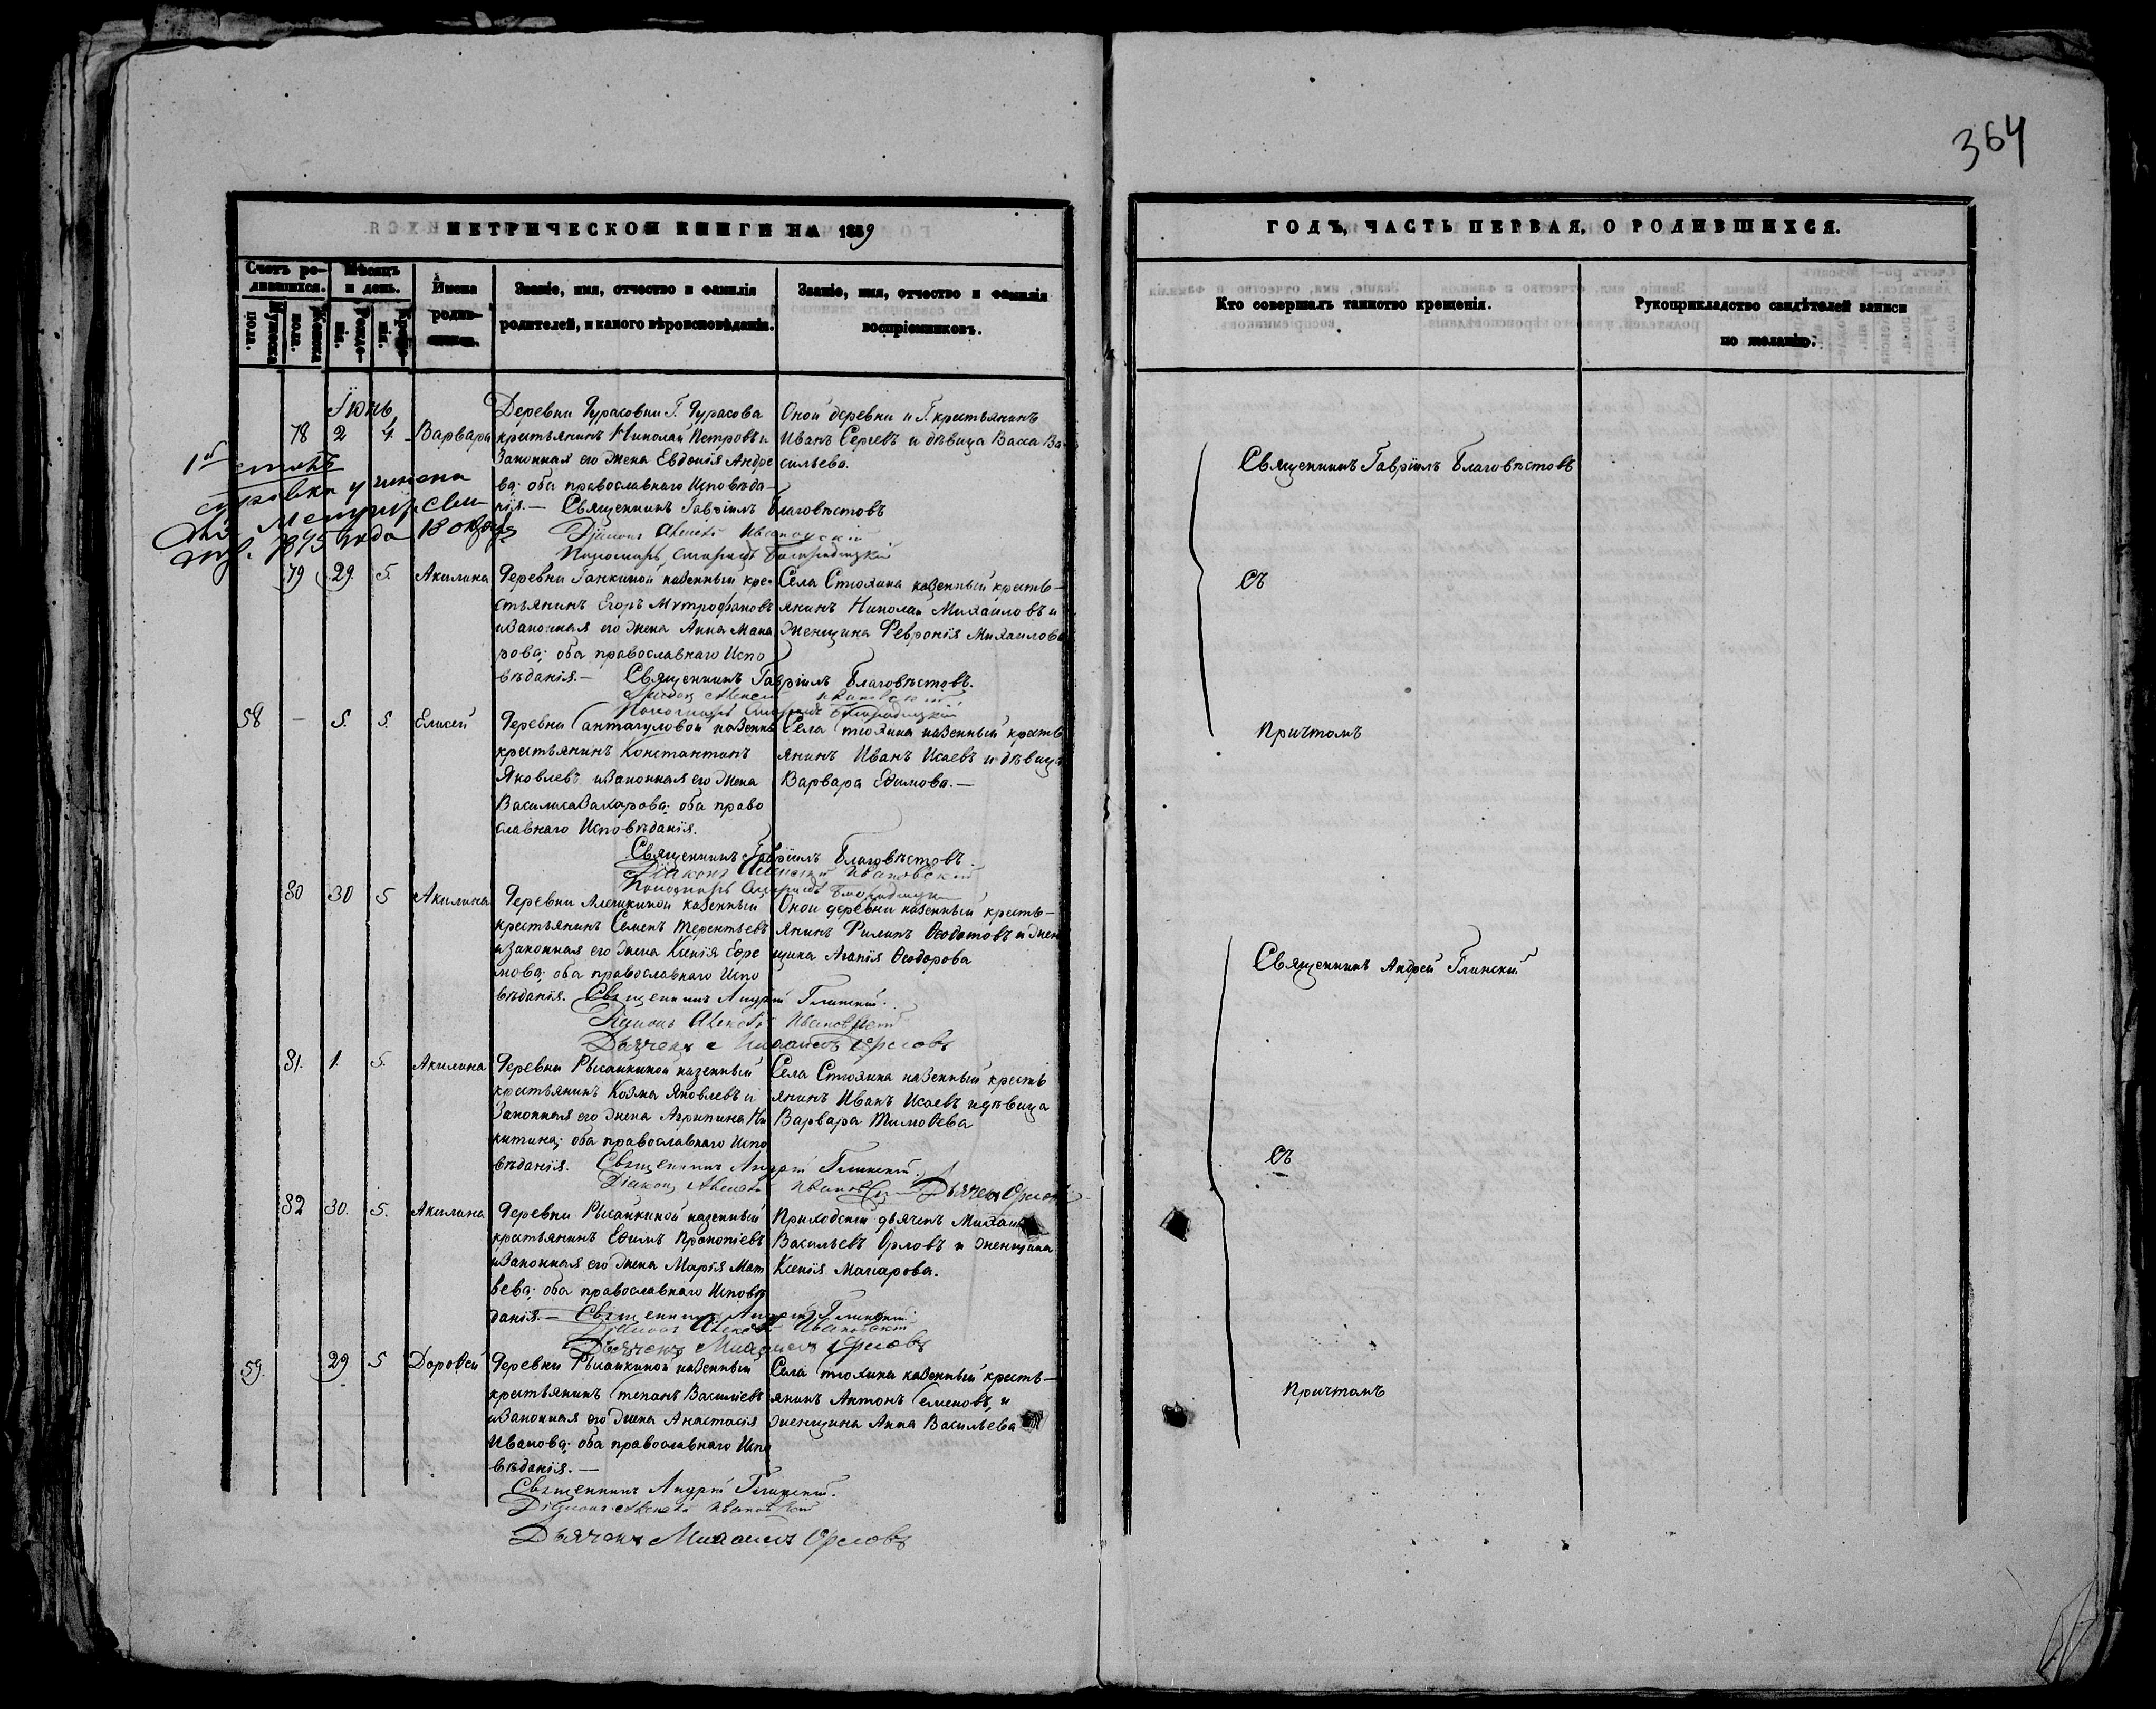 364
МЕТРИЧЕСКОЙ КНИГИ НА 1859
ГОДЪ, ЧАСТЬ ПЕРВАЯ, О РОДИВШИХСЯ.
Счетъ родившихся.
Мужеска пола.
Женска пола.
Мѣсяцъ и день.
Рожденія.
Крещенія.
Имена родившихся.
Званіе, имя, отчество и фамилія
родителей, и какого вѣроисповѣданія.
Званіе, имя, отчество и фамилія
воспріемниковъ.
Кто совершалъ таинство крещенія.
Рукоприкладство свидѣтелей записи
по желанію.
Іюнь
78 2 4. Варвара
Деревни Дурасовки Г. Дурасова
крестьянинъ Николай Петровъ и
Законная его жена Евдокія Андре
ва; оба православнаго Исповѣда-
нія.— Священникъ Гавріилъ Благовѣстовъ
Діаконъ Алексѣй Ивановскій
Пономарь
Оной деревни и Г. крестьянинъ
Иванъ Сергѣевъ и дѣвица Васса Ва
сильева.
1875 года 18
79 29. 5. Акилина
Деревни Ганкиной казенный кре-
стьянинъ Егоръ Митрофановъ
и Законная его жена Анна Мака
рова; оба православнаго Испо
вѣданія.— Священникъ Гавріилъ Благовѣстовъ.
Діаконъ Алексѣй Ивановскій
Пономарь
Села Стюхина казенный кресть-
янинъ Николай Михайловъ и
женщина Февронія Михайлова
58 — 5. 5. Елисей
Деревни Сантагуловой казенны
крестьянинъ Константинъ
Яковлевъ и Законная его жена
Василиса Захарова; оба право
славнаго Исповѣданія.
Священникъ Гавріилъ Благовѣстовъ.
Діаконъ Алексѣй Ивановскій
Пономарь
Села Стюхина казенный кресть
янинъ Иванъ Исаевъ и дѣвица
Варвара Ефимова.—
80 30 5 Акилина
Деревни Алешкиной казенный
крестьянинъ Семенъ Терентьевъ
и Законная его жена Ксенія Ефре
мова; оба православнаго Испо
вѣданія. Священникъ Андрей Глинскій.
Діаконъ Алексѣй Ивановскій
Дьячекъ Михаилъ Орловъ
Оной деревни казенный кресть-
янинъ Филипъ Ѳеодотовъ и жен
щина Агапія Ѳеодорова
81. 1. 5. Акилина
Деревни Рысайкиной казенный
крестьянинъ Козма Яковлевъ и
Законная его жена Агрипина Ни
китина; оба православнаго Испо
вѣданія. Священникъ Андрей Глинскій.
Діаконъ Алексѣй Ивановскій Дьячекъ Орловъ
Села Стюхина казенный кресть
янинъ Иванъ Исаевъ и дѣвица
Варвара Тимоѳева
82 30. 5. Акилина
Деревни Рысайкиной казенный
крестьянинъ Ефимъ Прокопіевъ
и Законная его жена Марія Мат
вева; оба православнаго Исповѣ
данія.— Священникъ Андрей Глинскій
Діаконъ Алексѣй Ивановскій
Дьячекъ Михаилъ Орловъ
Приходскій дьячекъ Михаилъ
Васильевъ Орловъ и женщина
Ксенія Макарова.
59. 29 5 Дороѳей
Деревни Рысайкиной казенный
крестьянинъ Степанъ Васильевъ
и Законная его жена Анастасія
Иванова; оба православнаго Испо
вѣданія.—
Священникъ Андрей Глинскій.
Діаконъ Алексѣй Ивановскій
Дьячекъ Михаилъ Орловъ
Села Стюхина казенный кресть-
янинъ Антонъ Семеновъ, и
женщина Анна Васильева
Священникъ Гавріилъ Благовѣстовъ
Съ
Причтомъ
Священникъ Андрей Глинскій
Съ
Причтомъ